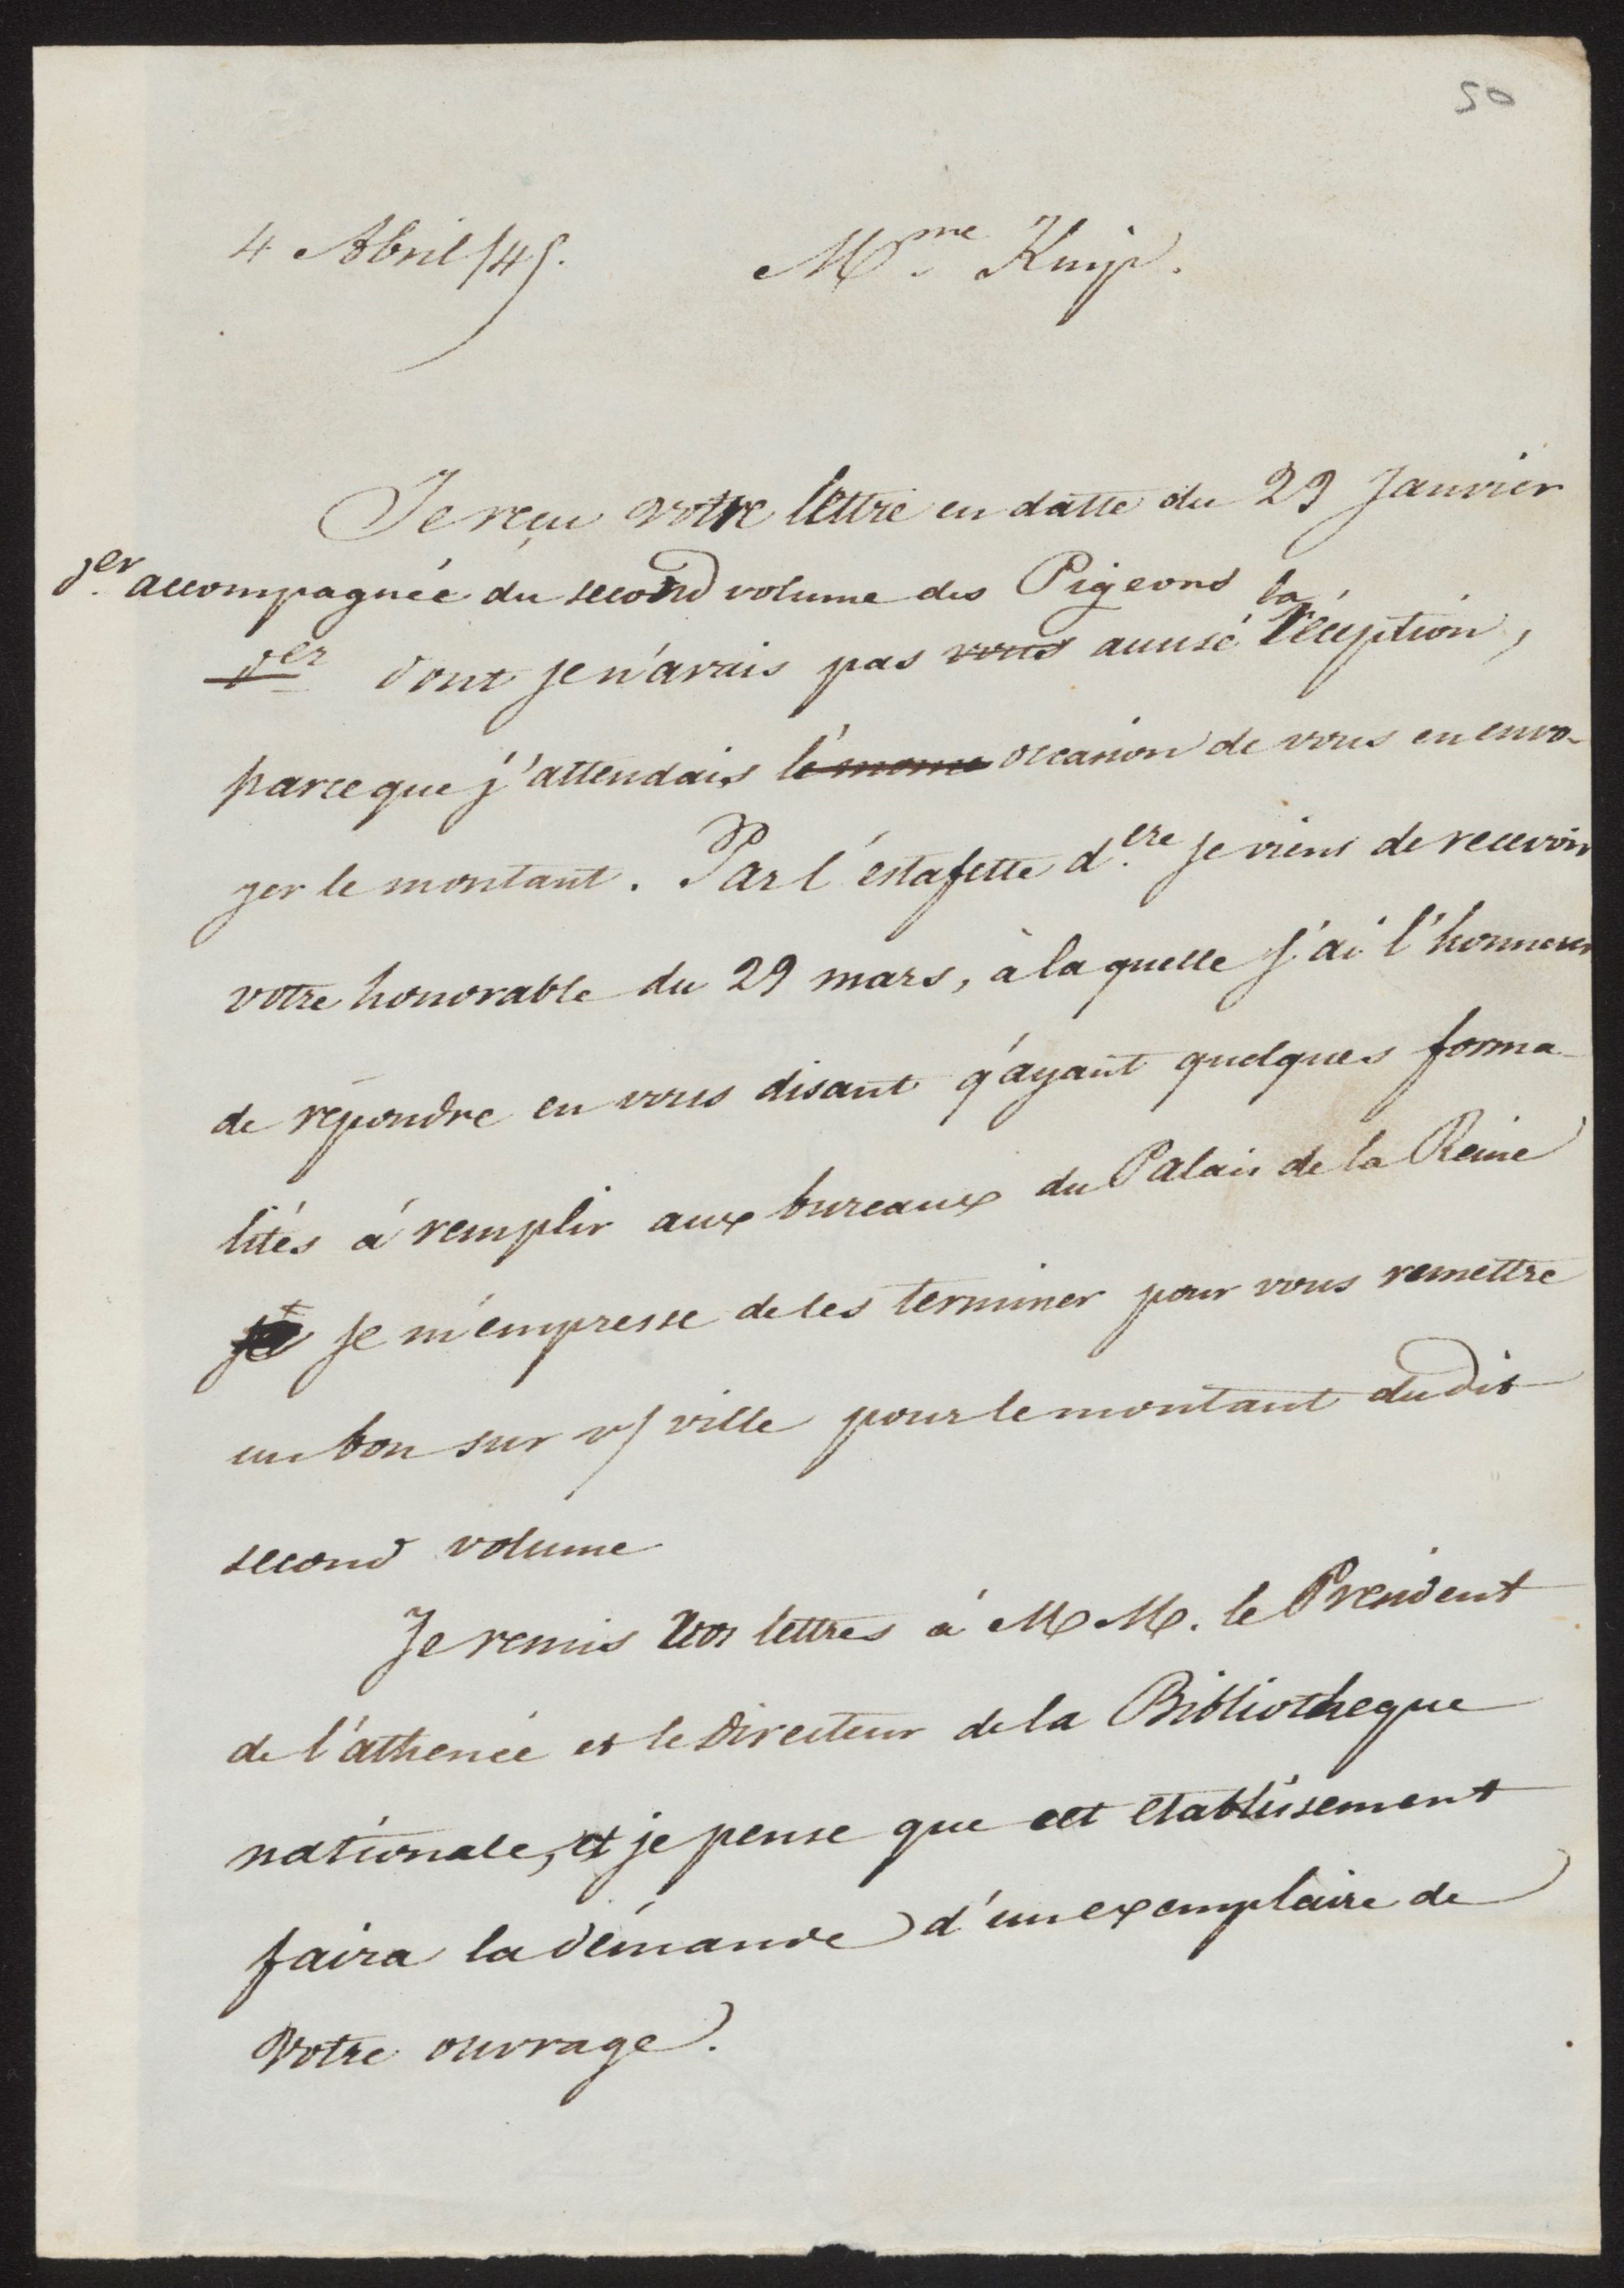 50
4 Abril /45. Mme Knip.
Je reçu votre lettre en datte du 29 Janvier
der accompagnée du second volume des Pigeons
der dont je n'avais pas vous accusé la réception,
parceque j'attendais le mome occasion de vous en envo-
yer le montant. Par l'estafette d.ere je viens de recevoir
votre honorable du 29 mars, à la quelle j'ai l'honneur
de répondre en vous disant q'ayant quelques forma-
lités á remplir aux bureaux du Palais de la Reine
je m'empresse de les terminer pour vous remettre
un bon sur v/ ville pour le montant du dit
second volume
Je remis vos lettres á M M. le President
de l'athenée et le Directeur de la Bibliotheque
nationale, et je pense que cet etablisement
faira la démande d'un exemplaire de
Votre ouvrage.